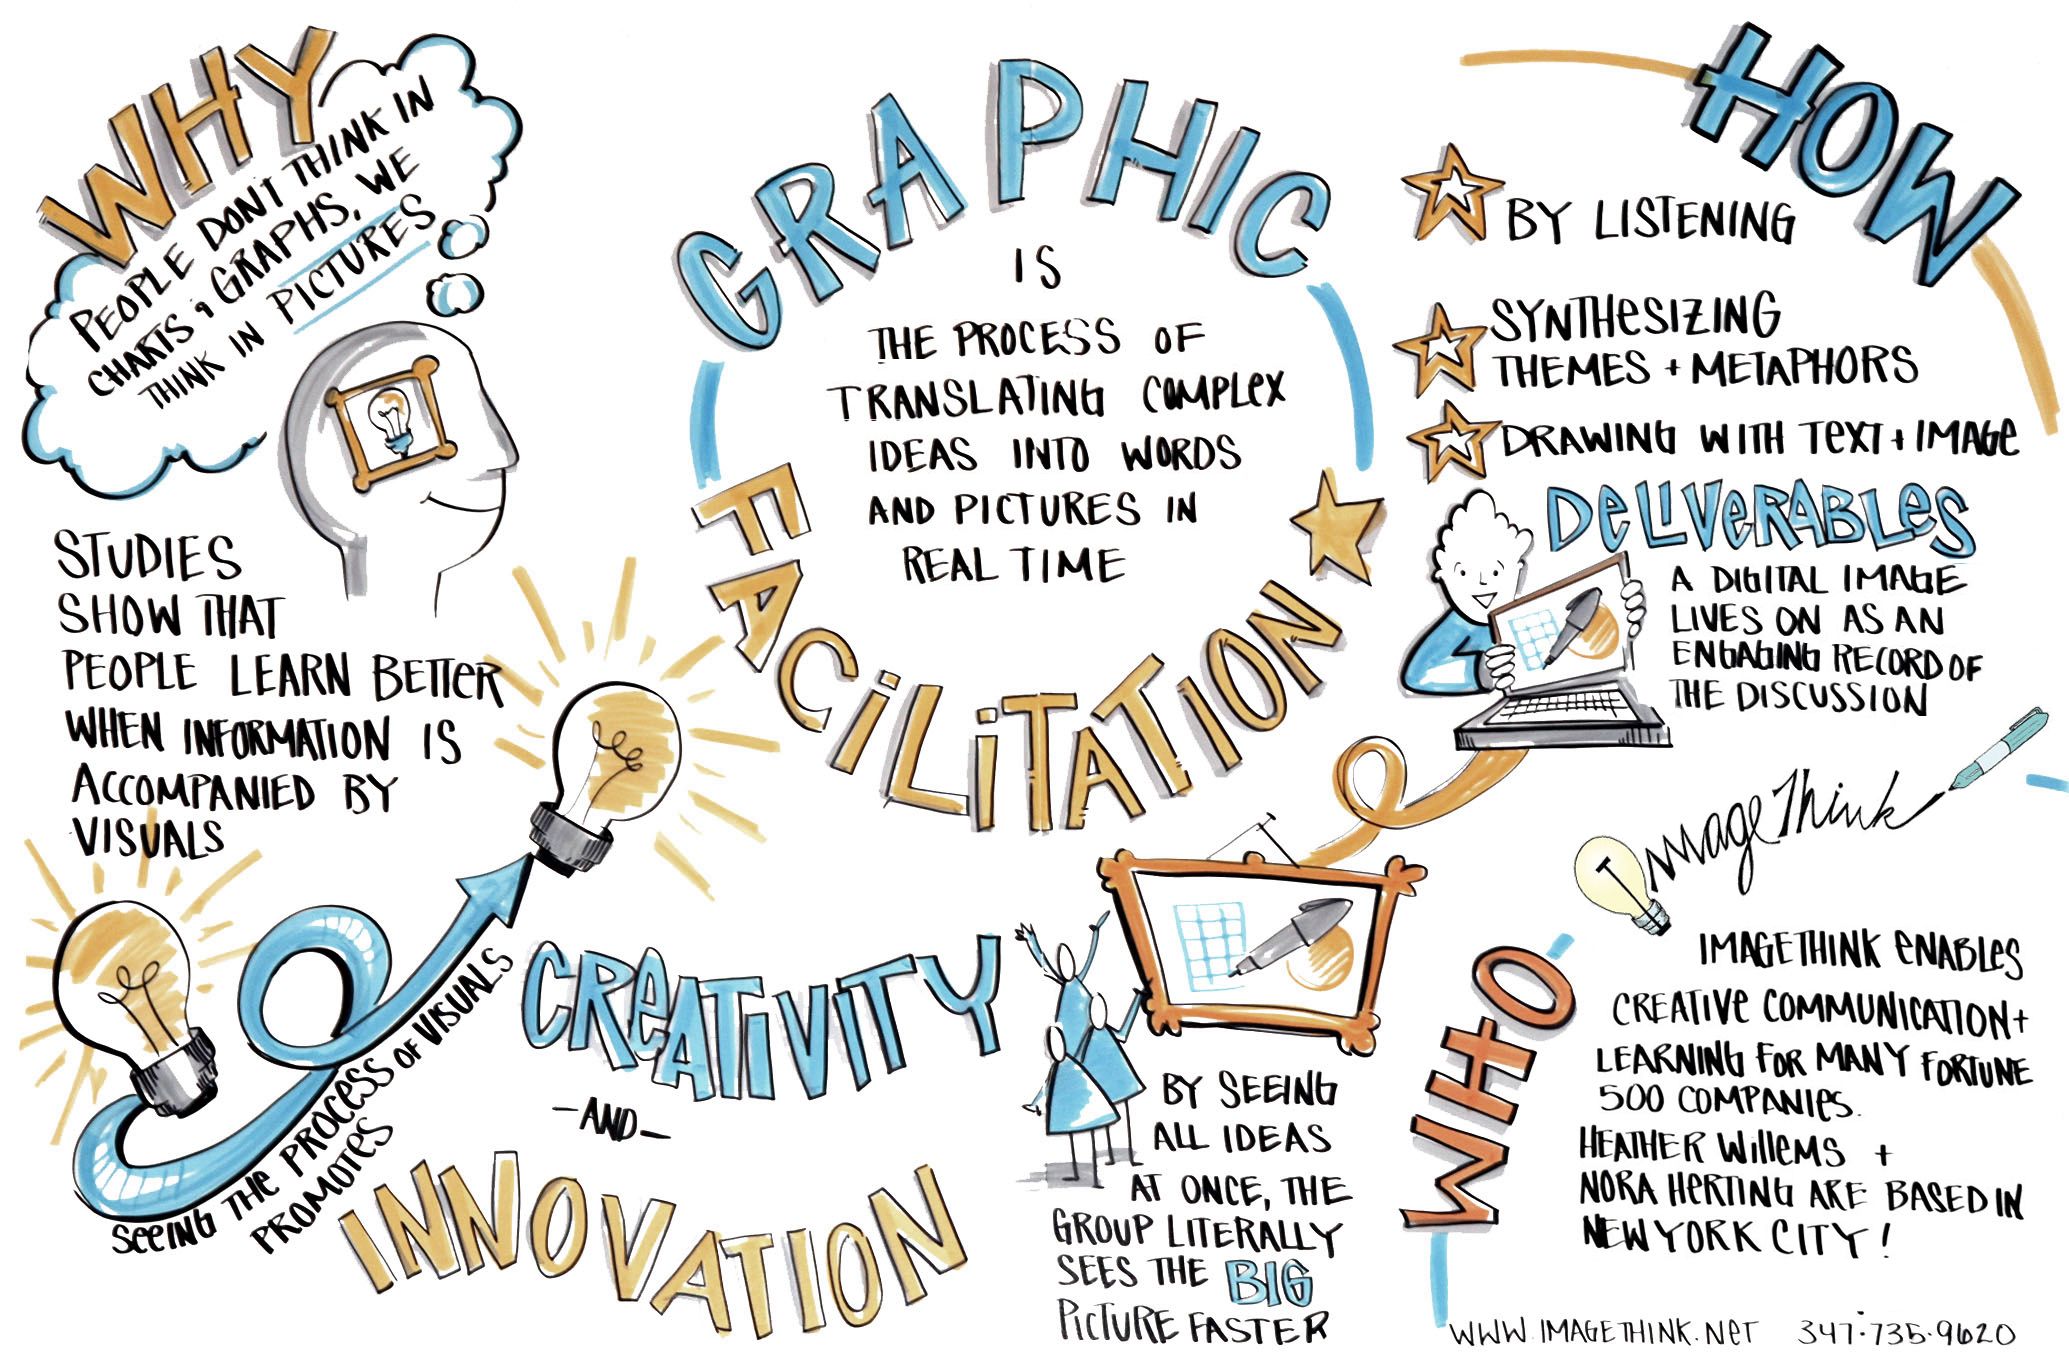 WHY
PEOPLE DON'T THINK IN
CHARTS & GRAPHS, WE
THINK IN PICTURES
STUDIES
SHOW THAT
PEOPLE LEARN BETTER
WHEN INFORMATION IS
ACCOMPANIED BY
VISUALS
SEEING THE PROCESS OF VISUALS
PROMOTES
CREATIVITY
-AND-
INNOVATION
GRAPHIC
FACILITATION
IS
THE PROCESS OF
TRANSLATING COMPLEX
IDEAS INTO WORDS
AND PICTURES IN
REAL TIME
BY SEEING
ALL IDEAS
AT ONCE, THE
GROUP LITERALLY
SEES THE BIG
PICTURE FASTER
HOW
BY LISTENING
SYNTHESIZING
THEMES + METAPHORS
DRAWING WITH TEXT + IMAGE
DELIVERABLES
A DIGITAL IMAGE
LIVES ON AS AN
ENGAGING RECORD OF
THE DISCUSSION
ImageThink
WHO
IMAGETHINK ENABLES
CREATIVE COMMUNICATION +
LEARNING FOR MANY FORTUNE
500 COMPANIES.
HEATHER WILLEMS +
NORA HERTING ARE BASED IN
NEW YORK CITY!
WWW.IMAGETHINK.NET 347·735·9620